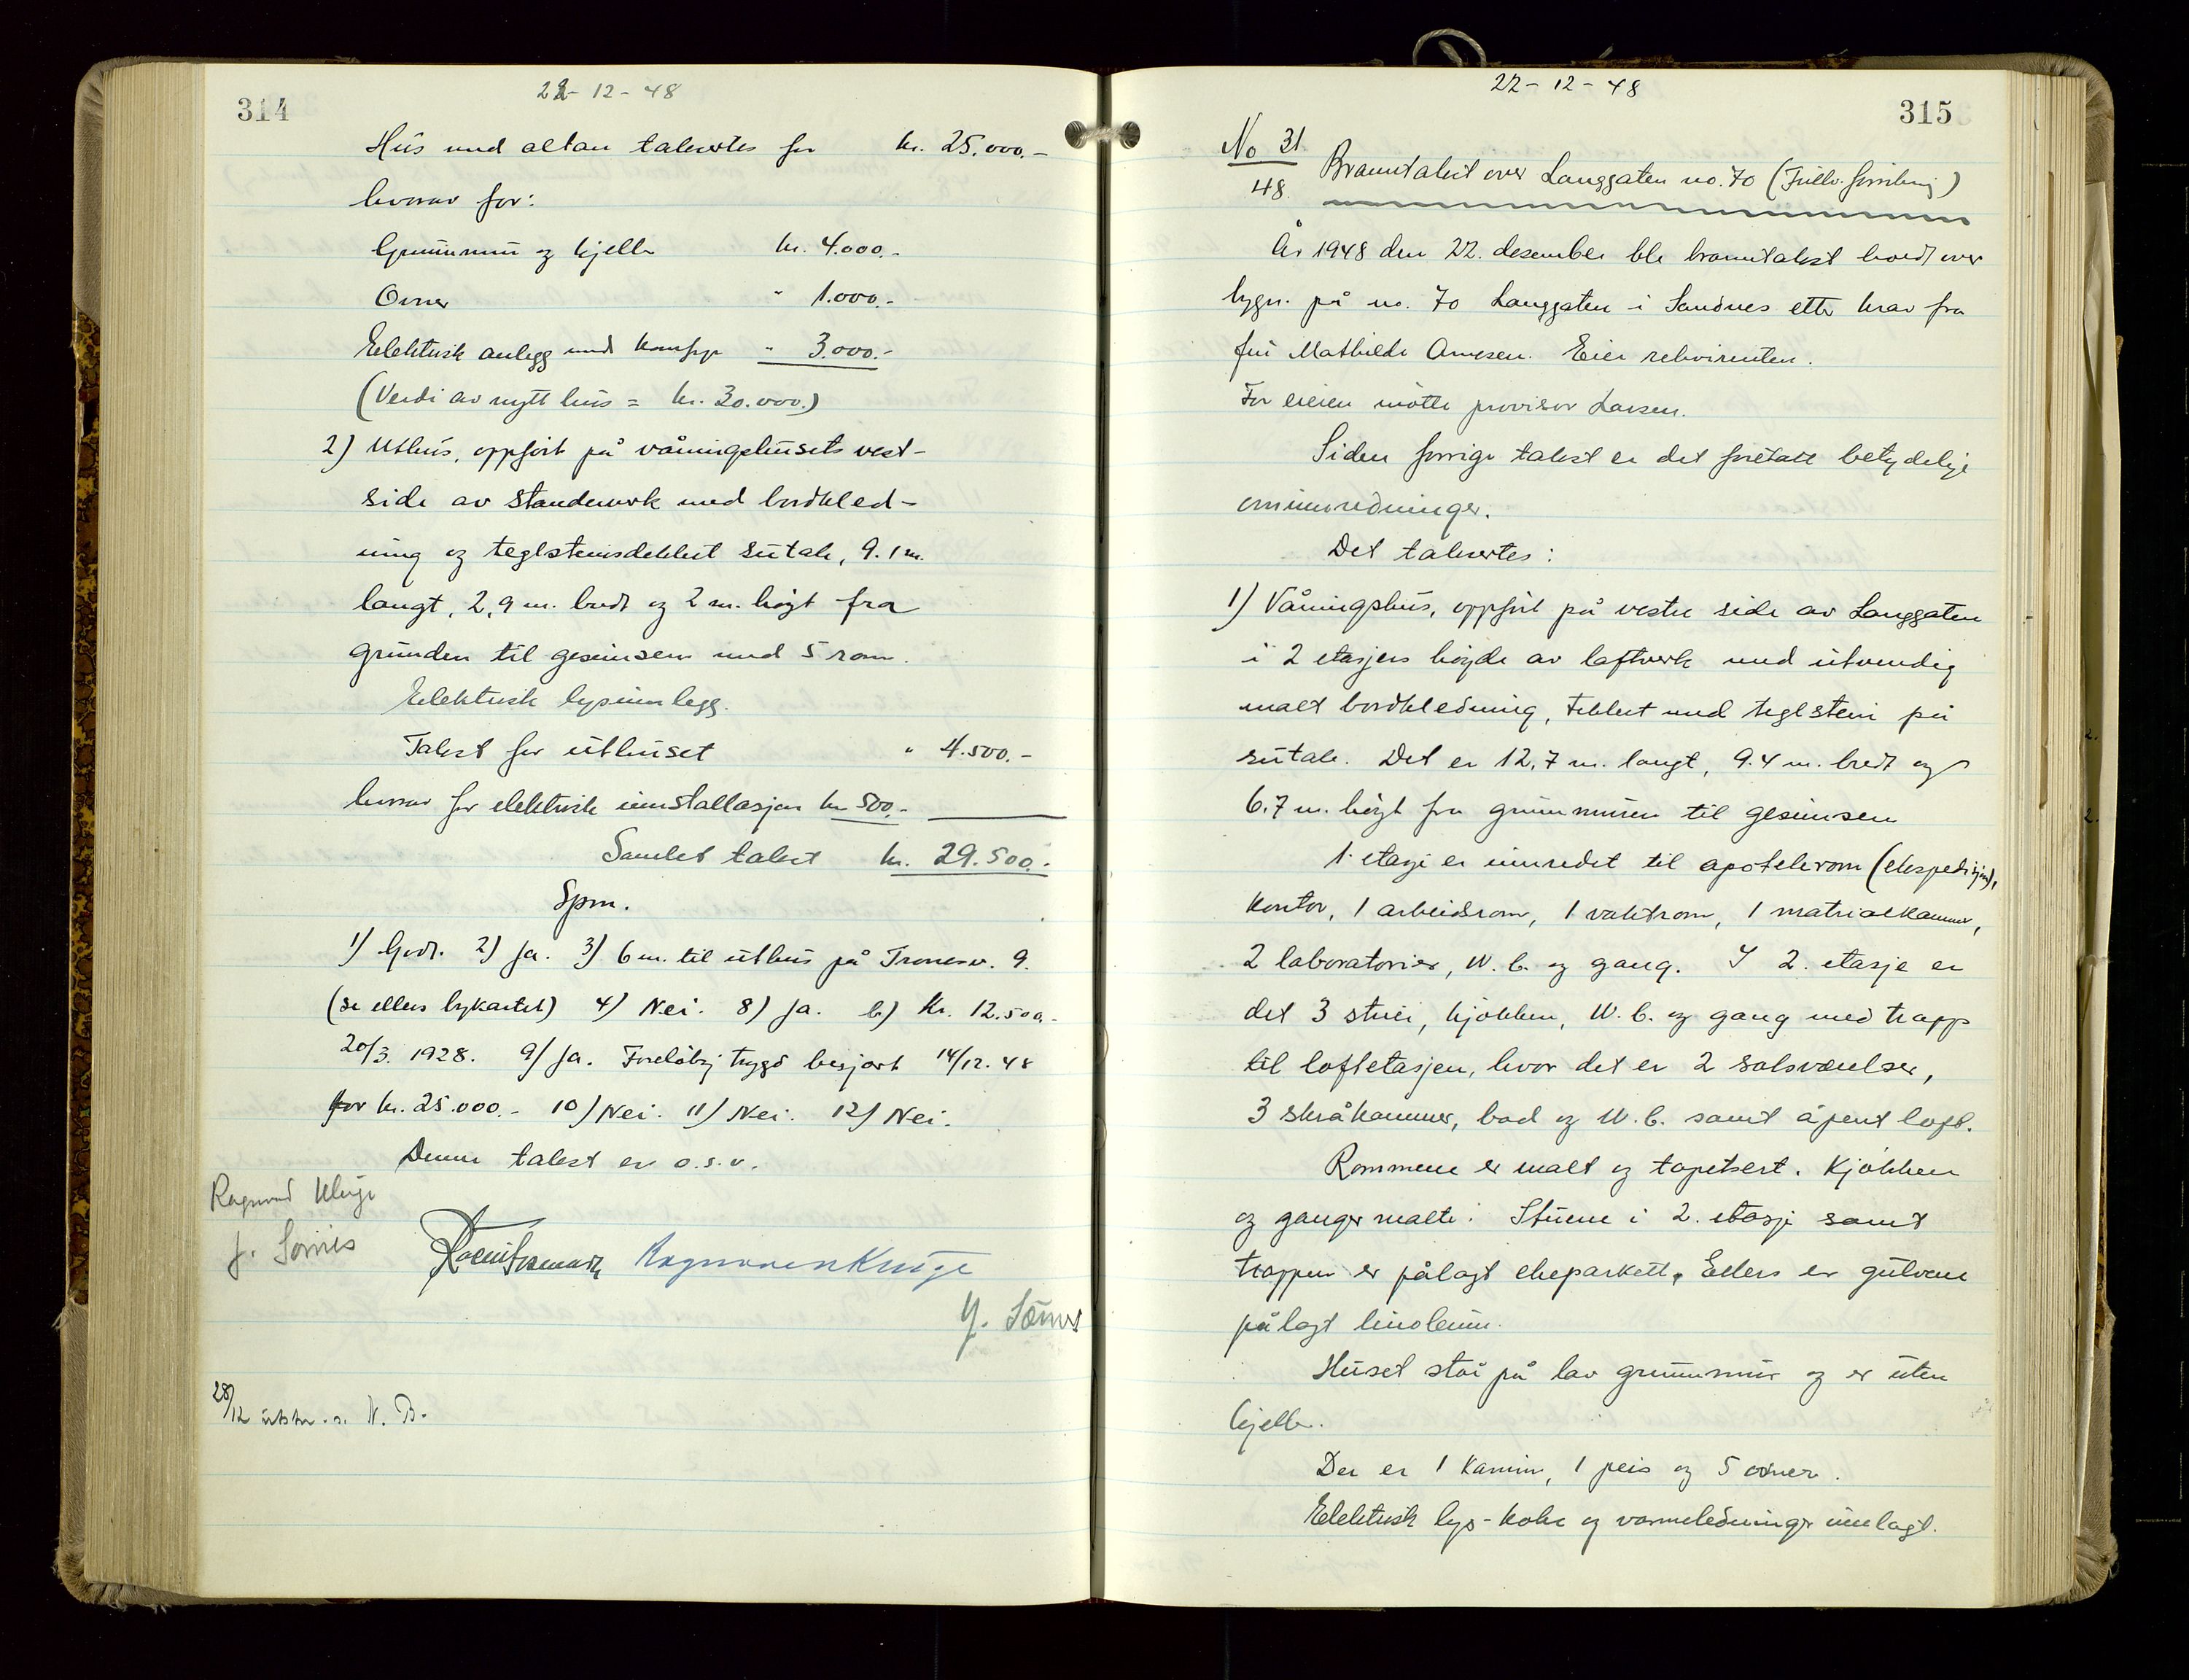 314
22-12-48
Hus med altan takseres for kr. 25.000.-
hvorav for:
Grunnmur og kjeller kr. 4.000.-
Ovner " 1.000.-
Elektrisk anlegg med komfyr " 3.000.-
(Verdi av nytt hus = kr. 30.000.)
2) Uthus, oppført på våningshusets vest-
side av standerverk med bordkled-
ning og teglsteinsdekket sutak, 9.1 m.
langt, 2,9 m. bredt og 2 m. högt fra
grunden til gesimsen med 5 rom.
Elektrisk lysinnlegg.
Takst for uthuset " 4.500.-
hvorav for elektrisk innstallasjon kr 500.-
Samlet takst kr. 29.500.-
Spm.
1) Godt. 2) Ja. 3) 6 m. til uthus på Tronesv. 9.
(se ellers bykartet) 4) Nei. 8) Ja. b) Kr. 12.500.-
20/3. 1928. 9) Ja. Foreløbig trygd besjørt 14/12. 48
for kr. 25.000.- 10) Nei. 11) Nei. 12) Nei.
Denne takst er o.s.v.
Ragnvald Kluge
J. Sömes
28/12 utskr. s. N. B.
315
22-12-48
No 31
48.
Branntakst over Langgaten no. 70
År 1948 den 22. desember ble branntakst hvedt over
bygn. på no. 70 Langgaten i Sandnes etter krav fra
fru Mathilde Arnesen. Eier rekvirenten.
For eieren møtte provisor Larsen.
Siden forrige takst er det foretatt betydelige
ominnredninger.
Det takseres:
1) Våningshus, oppført på vestre side av Langgaten
i 2 etasjers høyde av laftverk med utvendig
malt bordkledning, tekket med teglstein på
sutak. Det er 12,7 m. langt, 9.4 m. bredt og
6.7 m. högt fra grunnmuren til gesimsen
1. etasje er innredet til apotekrom (ekspedisjon),
kontor, 1 arbeidsrom, 1 vaktrom, 1 matrialkammer,
2 laboratorier, W.C. og gang. I 2. etasje er
det 3 stuer, kjökken, W.C. og gang med trapp
til loftetasjen, hvor det er 2 solsværelser,
3 skråkammer, bad og W.C. samt åpent loft.
Rommene er malt og tapetsert. Kjökken
og ganger malte. Stuene i 2. etasje samt
trappen er pålagt ekeparkett. Ellers er gulvene
pålagt linoleum.
Huset står på lav grunnmur og er uten
kjeller.
Der er 1 kamin, 1 peis og 5 ovner.
Elektrisk lys-koke og varmeledninger innlagt.